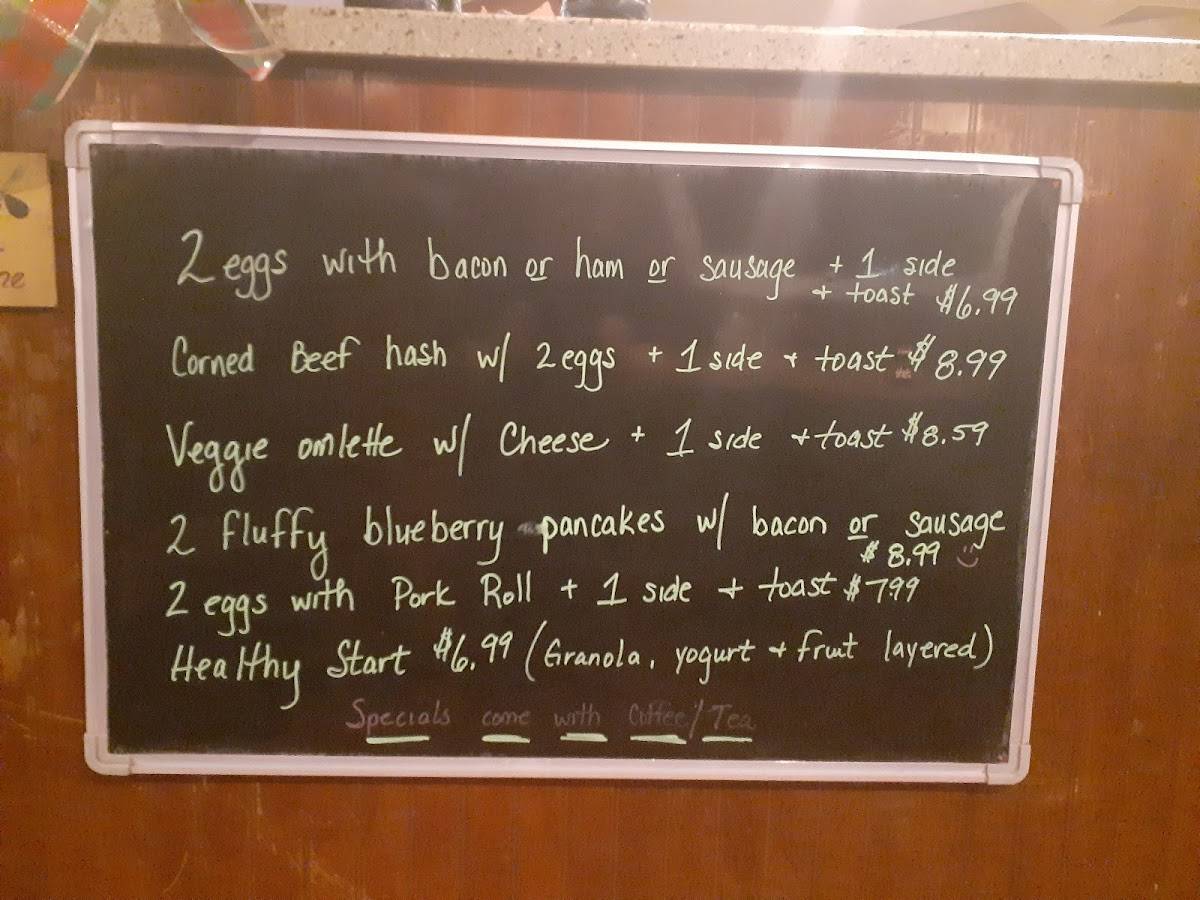 2 eggs with bacon or ham or sausage + 1 side
+ toast $6.99
Corned Beef hash w/ 2 eggs + 1 side + toast $8.99
Veggie omlette w/ Cheese + 1 side + toast $8.59
2 fluffy blueberry pancakes w/ bacon or sausage
$8.99
2 eggs with Pork Roll + 1 side + toast $799
Healthy Start $6.99 (Granola, yogurt + fruit layered)
Specials come with Coffee/Tea